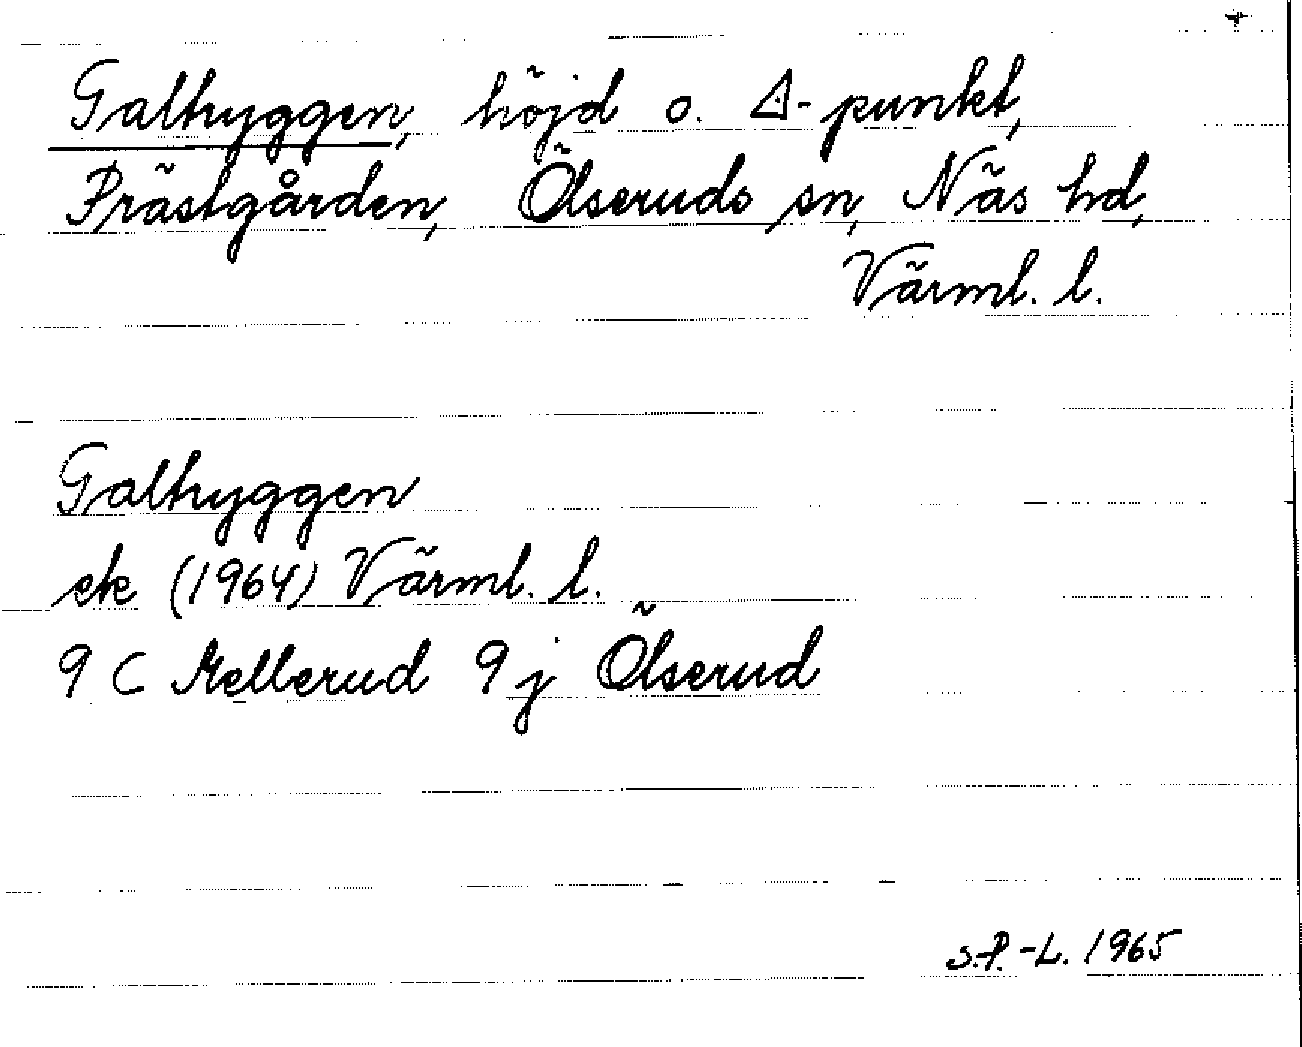 Galtryggen, höjd o. Δ-punkt,
Prästgården, Ölseruds sn, Näs hd,
Värml. l.
Galtryggen
ek (1964) Värml. l.
9 C Mellerud 9 j Ölserud
S.P.-L. 1965